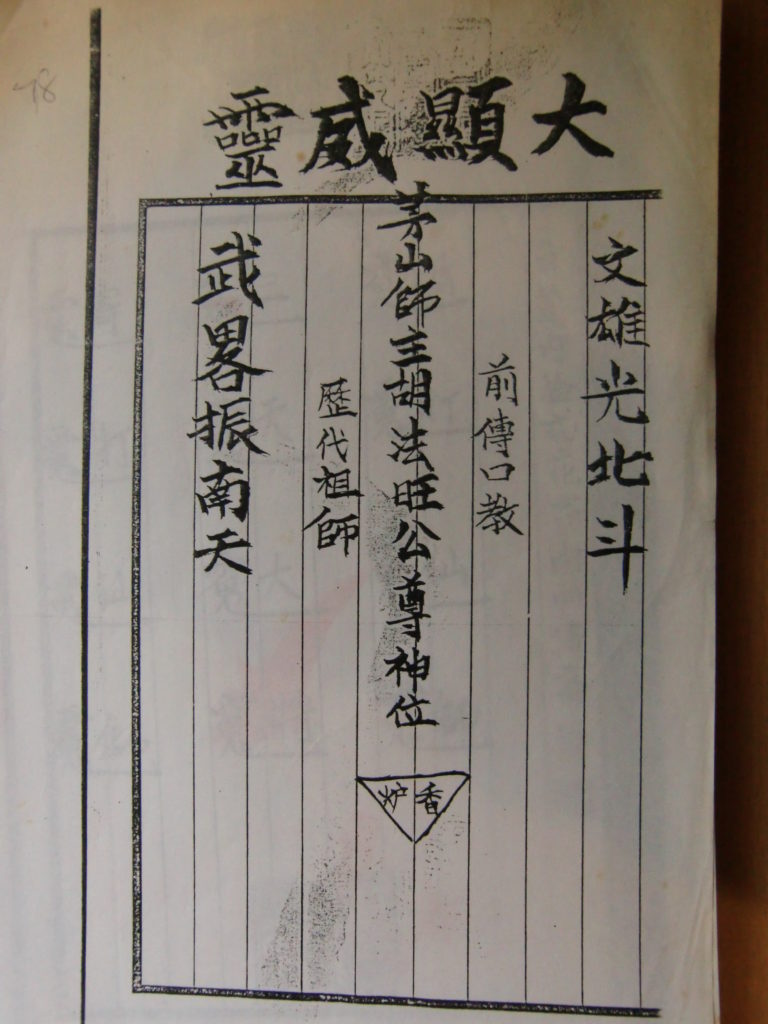 大顯威靈
文雄光北斗
前傳口教
茅山師主胡法旺公尊神位
香炉
歷代祖師
武畧振南天
78